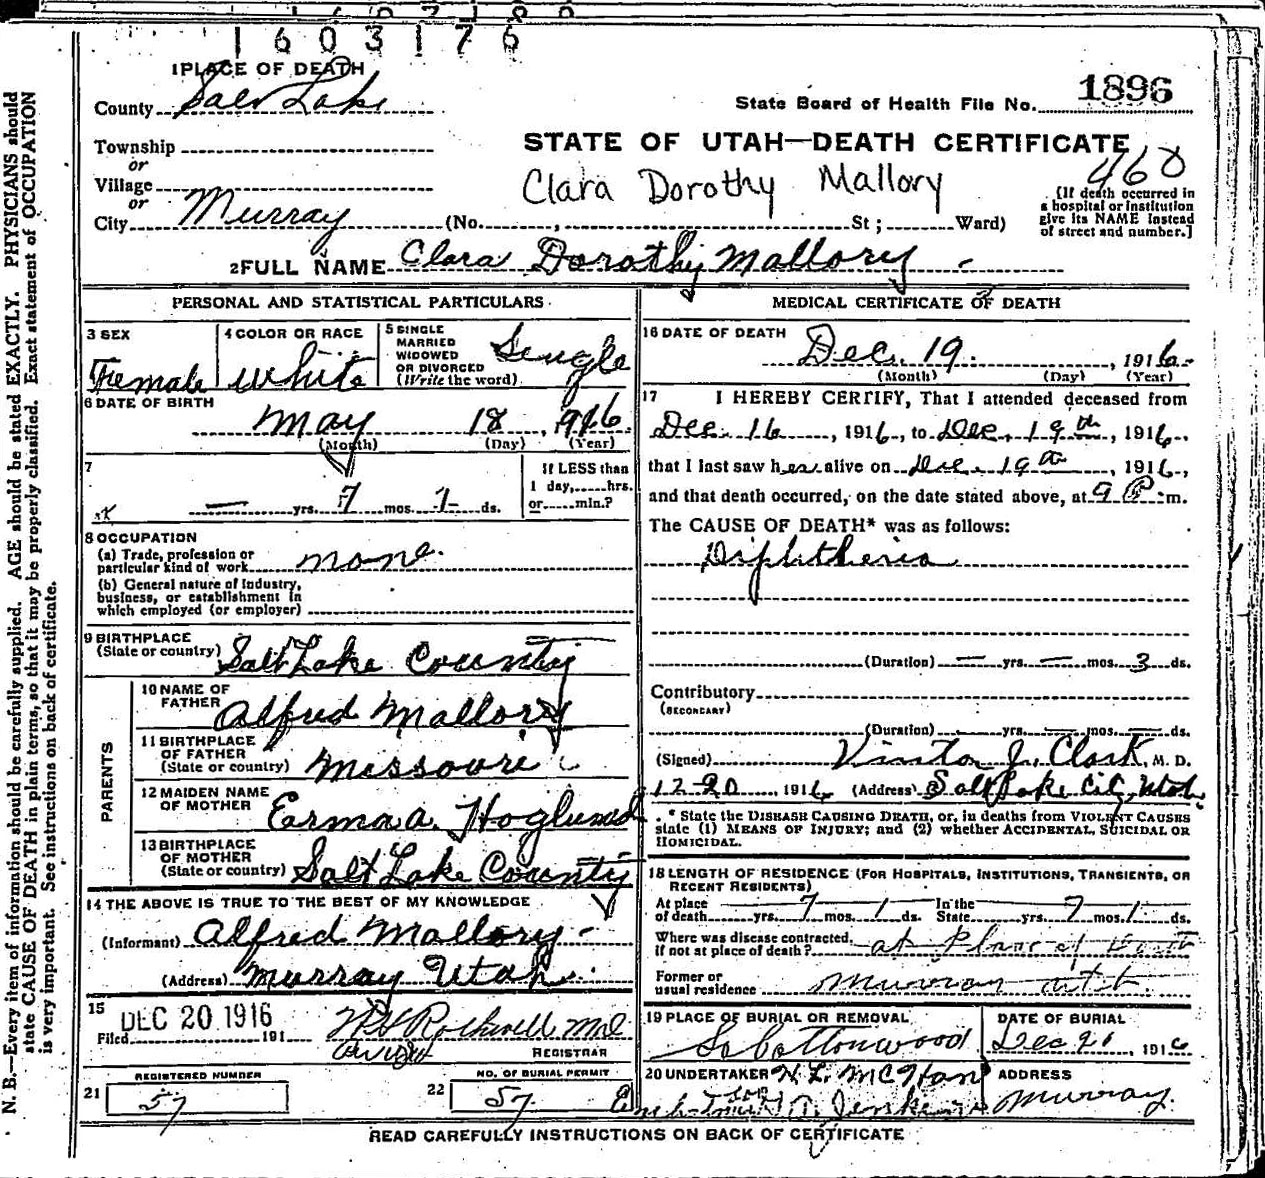 1603176
1 PLACE OF DEATH
County Salt Lake
State Board of Health File No. 1896
Township
or
Village
or
City Murray (No. , St ; Ward)
STATE OF UTAH—DEATH CERTIFICATE
460
Clara Dorothy Mallory
[If death occurred in
a hospital or institution
give its NAME instead
of street and number.]
2 FULL NAME Clara Dorothy Mallory
PERSONAL AND STATISTICAL PARTICULARS
3 SEX
Female
4 COLOR OR RACE
White
5 SINGLE
MARRIED
WIDOWED
OR DIVORCED
(Write the word)
Single
6 DATE OF BIRTH
May 18, 1916
(Month) (Day) (Year)
7
— yrs. 7 mos. 1 ds.
If LESS than
1 day, hrs.
or min.?
8 OCCUPATION
(a) Trade, profession or
particular kind of work none.
(b) General nature of industry,
business, or establishment in
which employed (or employer)
9 BIRTHPLACE
(State or country) Salt Lake County
PARENTS
10 NAME OF
FATHER
Alfred Mallory
11 BIRTHPLACE
OF FATHER
(State or country) Missouri
12 MAIDEN NAME
OF MOTHER
Erma A. Hoglund
13 BIRTHPLACE
OF MOTHER
(State or country) Salt Lake County
14 THE ABOVE IS TRUE TO THE BEST OF MY KNOWLEDGE
(Informant) Alfred Mallory
(Address) Murray Utah
15
Filed DEC 20 1916 191
REGISTRAR
REGISTERED NUMBER
21 57
NO. OF BURIAL PERMIT
22 57
MEDICAL CERTIFICATE OF DEATH
16 DATE OF DEATH
Dec. 19, 1916
(Month) (Day) (Year)
17 I HEREBY CERTIFY, That I attended deceased from
Dec. 16, 1916, to Dec. 19th, 1916.,
that I last saw her alive on Dec. 19th, 1916,
and that death occurred, on the date stated above, at 9 P. m.
The CAUSE OF DEATH* was as follows:
Diphtheria
(Duration) — yrs. — mos. 3 ds.
Contributory
(SECONDARY)
(Duration) — yrs. — mos. — ds.
(Signed) Vinton J. Clark, M. D.
12-20, 1916 (Address) Salt Lake City, Utah.
* State the DISEASE CAUSING DEATH, or, in deaths from VIOLENT CAUSES
state (1) MEANS OF INJURY; and (2) whether ACCIDENTAL, SUICIDAL OR
HOMICIDAL.
18 LENGTH OF RESIDENCE (FOR HOSPITALS, INSTITUTIONS, TRANSIENTS, OR
RECENT RESIDENTS)
At place
of death — yrs. 7 mos. 1 ds.
In the
State — yrs. 7 mos. 1 ds.
Where was disease contracted,
if not at place of death? at place of death
Former or
usual residence Murray
19 PLACE OF BURIAL OR REMOVAL
So Cottonwood
DATE OF BURIAL
Dec 20, 1916
20 UNDERTAKER
ADDRESS
Murray.
READ CAREFULLY INSTRUCTIONS ON BACK OF CERTIFICATE
N. B.—Every item of information should be carefully supplied. AGE should be stated EXACTLY. PHYSICIANS should
state CAUSE OF DEATH in plain terms, so that it may be properly classified. Exact statement of OCCUPATION
is very important. See instructions on back of certificate.